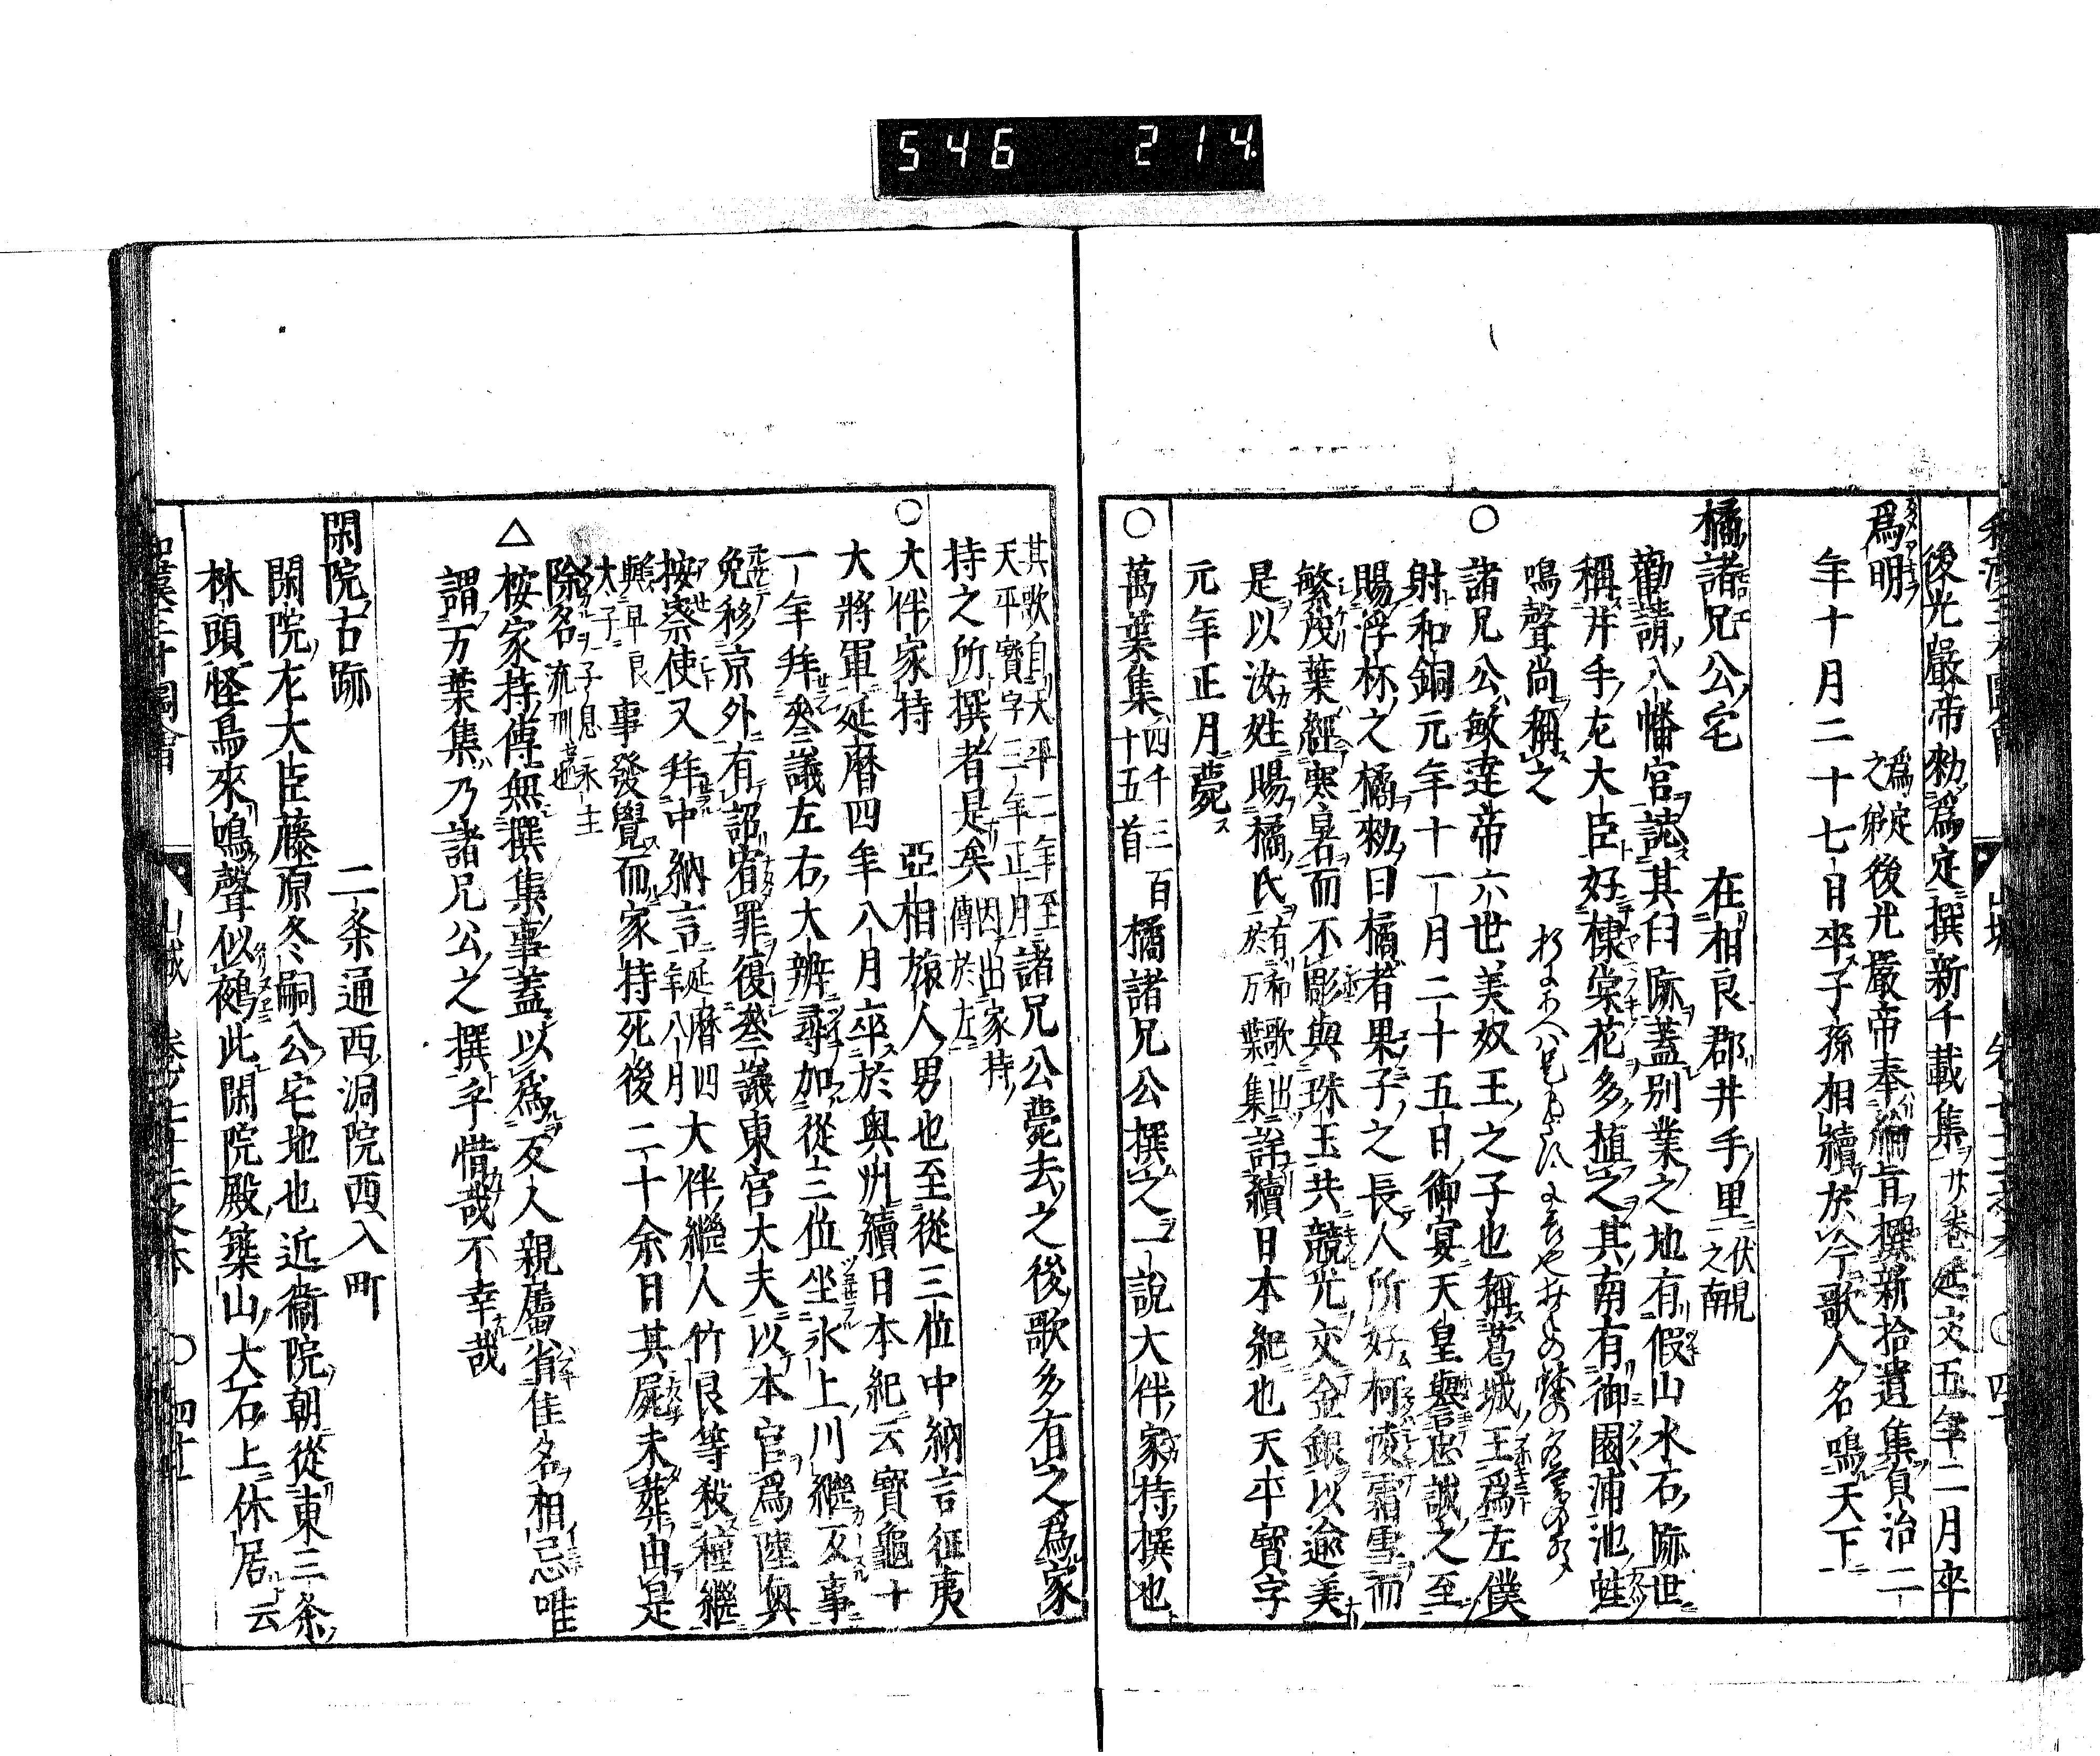 546 214
後光嚴帝勅爲定撰新千載集廿巻延文五年二月卒
爲明 爲定之弟 後光嚴帝奉綸旨撰新拾遺集貞治二
年十月二十七日卒子孫相續於今歌人名鳴天下
橘諸兄公宅 在相良郡井手里伏見之南
勸請八幡宮誌其臼跡蓋别業之地有假山水石跡世
稱井手左大臣好棣棠花多植之其南有御園浦池蛙
鳴聲尚稱之
○諸兄公敏達帝六世美奴王之子也稱葛城王爲左僕
射和銅元年十一月二十五日御宴天皇譽忠誠之至
賜浮杯之橘勅曰橘者果子之長人所好柯凌霜雪而
繁茂葉經寒暑而不彫與珠玉共競光交金銀以逾美
是以汝姓賜橘氏有和歌出於万葉集 詳續日本紀也天平寳字
元年正月薨ス
○萬葉集四千三百十五首 橘諸兄公撰之一說大伴家持撰也
其歌自天平二年至天平寳字三年正月諸兄公薨去之後歌多有之爲家
持之所撰者是矣 因出家持傳於左
○大伴家持 亞相旅人男也至從三位中納言征夷
大將軍延曆四年八月卒於奥州續日本紀云寳龜十
一年拜參議左右大辨尋加從三位坐氷上川繼反事
免移京外有詔宥罪復參議東宮大夫以本官爲陸奥
按察使又拜中納言延曆四年八月大伴繼人竹良等殺種繼
太子早良事發覺而家持死後二十余日其屍未葬由是
除名子息永主流刑
△按家持傳無撰集事蓋以爲反人親屬省佳名相忌唯
謂万葉集乃諸兄公之撰乎惜哉不幸哉
閑院古跡 二条通西洞院西入町
閑院左大臣藤原冬嗣公宅地也近衞院朝從東三条
林頭怪鳥來鳴聲似鵺此閑院殿築山大石上休居云